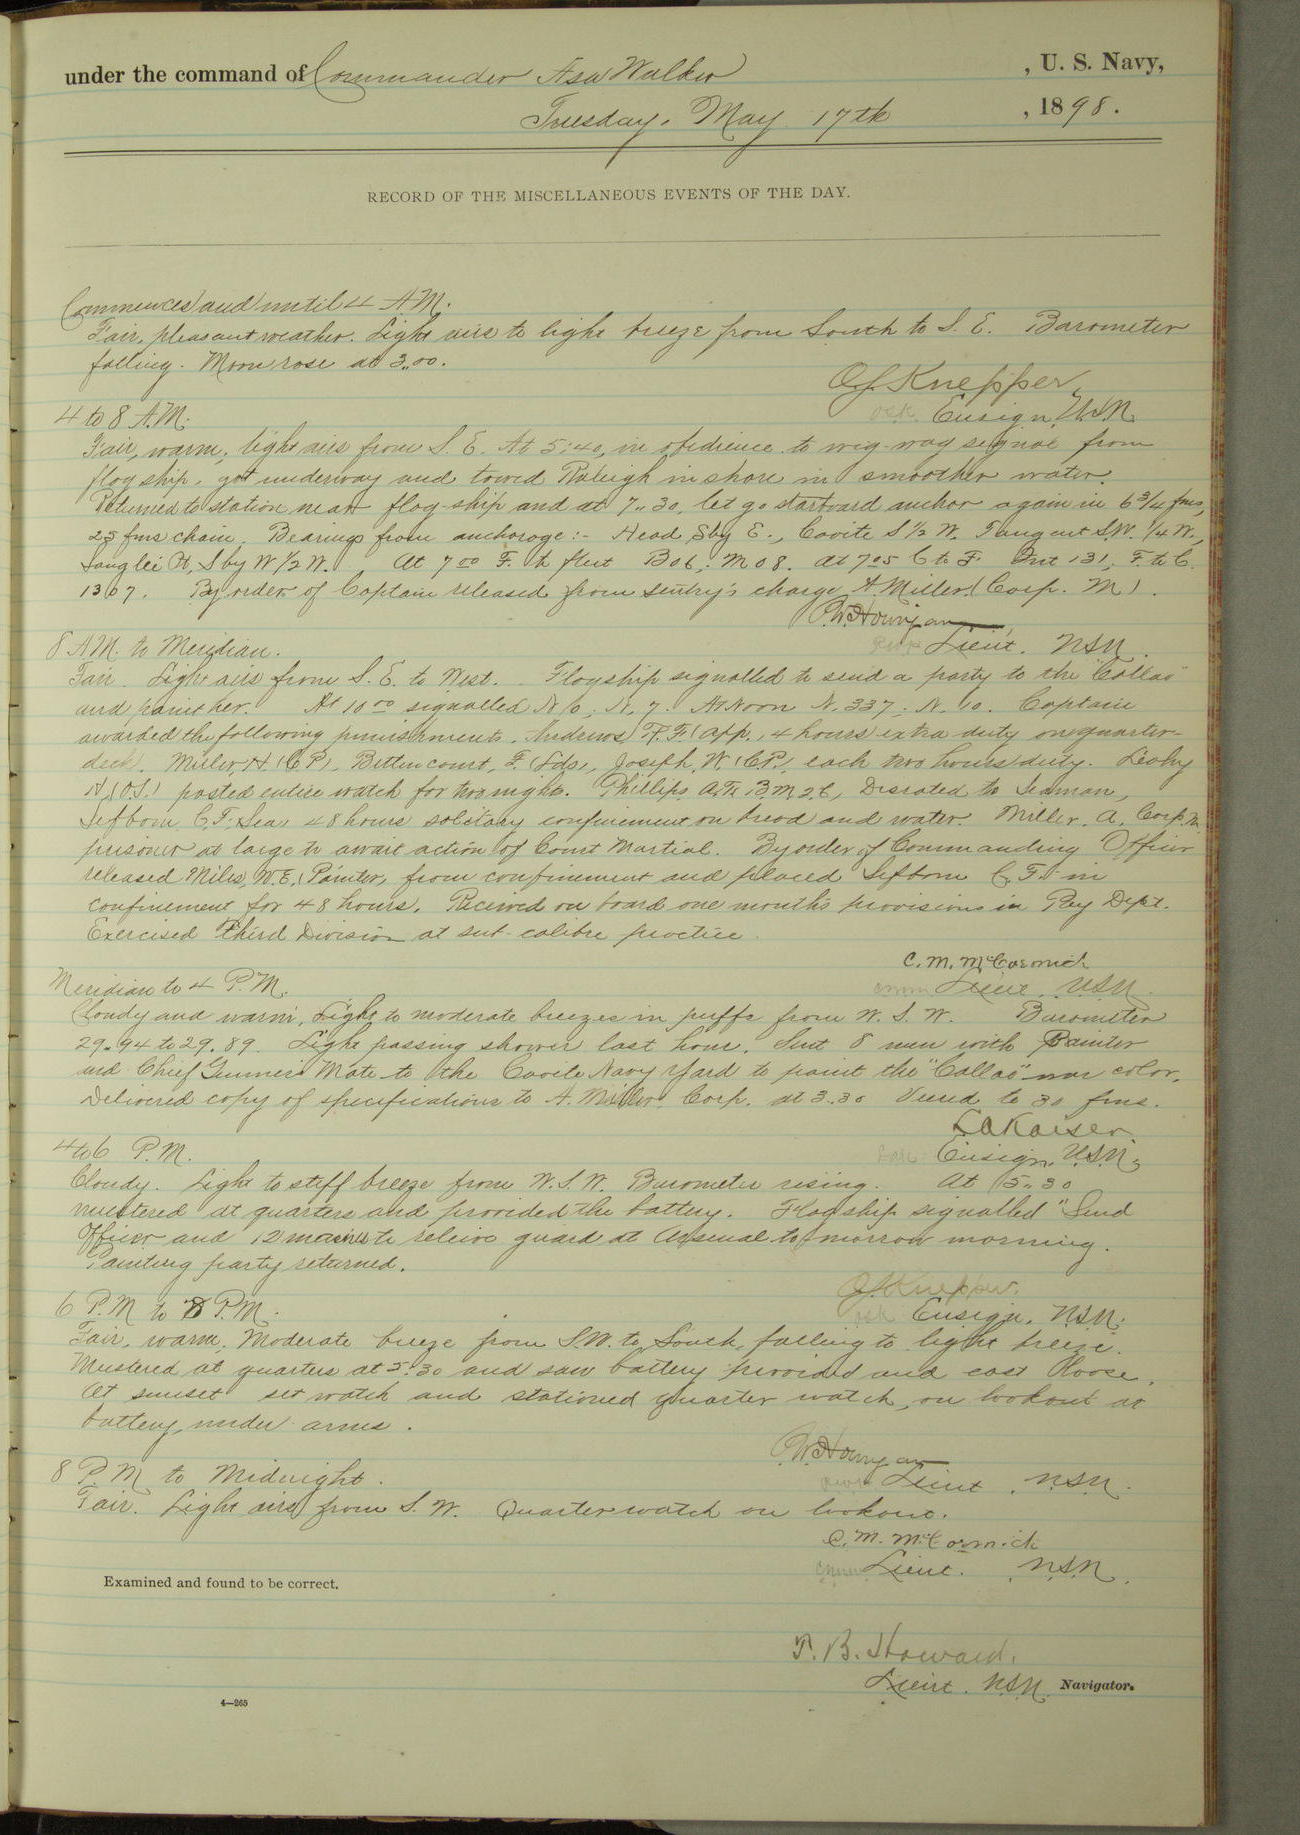 under the command of Commander Asa Walker , U. S. Navy,
Tuesday, May 17th , 1898.
RECORD OF THE MISCELLANEOUS EVENTS OF THE DAY.
Commences and until 4 A.M.
Fair, pleasant weather. Light airs to light breeze from South to S. E. Barometer
falling. Moon rose at 3.00.
O.S. Knepper,
Ensign, U.S.N.
4 to 8 A.M.
Fair, warm, light airs from S. E. At 5:40, in obedience to wig-wag signal from
flag ship, got underway and towed Raleigh in shore in smoother water.
Returned to station near flag-ship and at 7.30, let go starboard anchor again in 6 3/4 fms,
25 fms chain. Bearings from anchorage:- Head S by E., Cavite S 1/2 W. Tangent S.W. 1/4 W.,
Sanglei Pt, S by W 1/2 W. At 7 00 F. to fleet B06; M08. At 7 05 C to F. Int 131, F. to C.
1307. By order of Captain released from sentry's charge A. Miller (Corp. M).
P.W. Hourigan,
Lieut. U.S.N.
8 A.M. to Meridian.
Fair. Light airs from S. E. to West. Flagship signalled to send a party to the "Callao"
and paint her. At 10 00 signalled N 0; N. 7. At Noon N. 337; N. 10. Captain
awarded the following punishments. Andrews, F. F. (App., 4 hours extra duty on quarter-
deck. Miller, H (C.P), Bettencourt, F. (Lds), Joseph, W (C.P.), each two hours duty. Leahy
H, (O.S.) posted entire watch for two nights. Phillips A.Th B.M 2.C, Disrated to Seaman,
Seftbom, C.F. Sea, 48 hours solitary confinement on bread and water. Miller, A. Corp. M.
prisoner at large to await action of Court Martial. By order of Commanding Officer
released Miles, W.E. (Painter, from confinement and placed Seftbom C. F. in
confinement for 48 hours. Received on board one month's provisions in Pay Dept.
Exercised Third Division at sub-calibre practice.
C. M. McCormick
Lieut. U.S.N.
Meridian to 4 P.M.
Cloudy and warm. Light to moderate breezes in puffs from W. S. W. Barometer
29.94 to 29.89. Light passing shower last hour. Sent 8 men with Painter
and Chief Gunner's Mate to the Cavite Navy Yard to paint the "Callao" war color.
Delivered copy of specifications to A. Miller Corp. at 3.30 Veered to 30 fms.
L.A. Kaiser
Ensign, U.S.N.
4 to 6 P.M.
Cloudy. Light to stiff breeze from W. S. W. Barometer rising. At 5.30
mustered at quarters and provided the battery. Flagship signalled "Send
Officer and 12 marines to relieve guard at Arsenal to-morrow morning.
Painting party returned.
O.S. Knepper.
Ensign, U.S.N.
6 P.M. to 8 P.M.
Fair, warm, Moderate breeze from S.W. to South, falling to light breeze.
Mustered at quarters at 5.30 and saw battery provided and cast loose.
At sunset set watch and stationed quarter watch, on lookout at
battery, under arms.
P.W. Hourigan
Lieut. U.S.N.
8 P.M. to Midnight.
Fair. Light airs from S. W. Quarter watch on lookout.
C. M. McCormick
Lieut. U.S.N.
Examined and found to be correct.
T. B. Howard,
Lieut. U.S.N. Navigator.
4—265